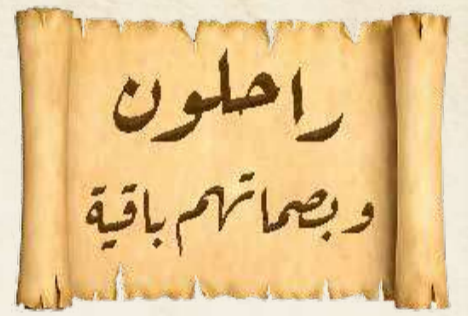 راحلون
وبصماتهم باقية